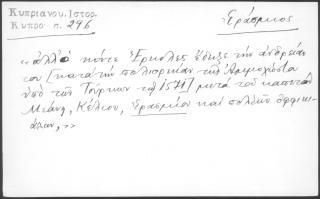 Κυπριανου. Ιστορ.
Κυπρο σ. 296
Ἐράσμιος
«ἀλλὰ κόντε Ἕρκολες ἔδειξε τὴν ἀνδρείαν
του [κατὰ τὴν πολιορκίαν τῆς Ἀμμοχώστου
ὑπὸ τῶν Τούρκων τῷ 1571] μετὰ τοῦ καπετάν
Μεάνη, Κέλιου, Ἐρασμίου καὶ πολλῶν ὀφφικι-
άλων,»